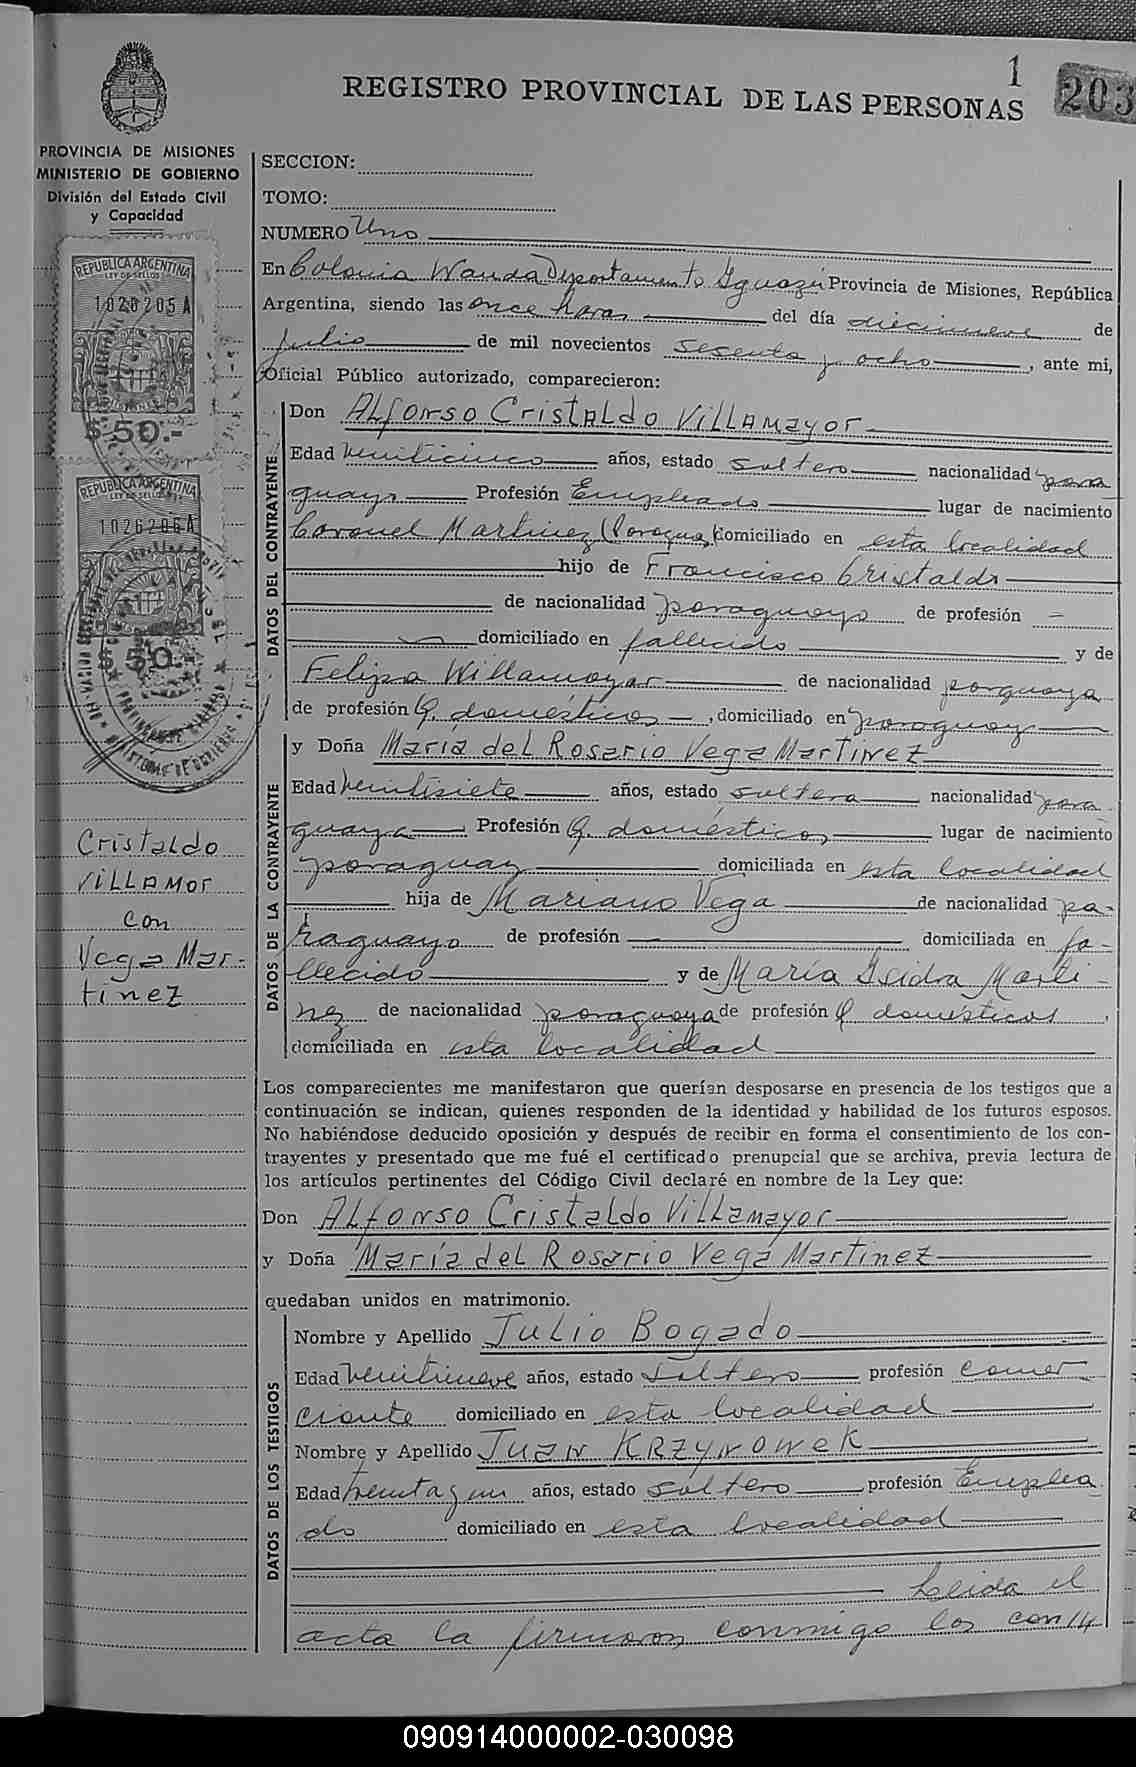 1
203
REGISTRO PROVINCIAL DE LAS PERSONAS
PROVINCIA DE MISIONES
MINISTERIO DE GOBIERNO
División del Estado Civil
y Capacidad
REPUBLICA ARGENTINA
LEY DE SELLOS
1026205A
$ 50.-
REPUBLICA ARGENTINA
LEY DE SELLOS
1026206A
$ 50.-
Cristaldo
Villamor
con
Vega Mar-
tinez
SECCION:
TOMO:
NUMERO Uno
En Colonia Wanda Departamento Iguazú Provincia de Misiones, República
Argentina, siendo las once horas del día diecinueve de
Julio de mil novecientos sesenta y ocho, ante mi,
Oficial Público autorizado, comparecieron:
DATOS DEL CONTRAYENTE
Don Alfonso Cristaldo Villamayor
Edad veinticinco años, estado soltero nacionalidad para
guayo Profesión Empleado lugar de nacimiento
Coronel Martinez (Paraguay) domiciliado en esta localidad
hijo de Francisco Cristaldo
de nacionalidad paraguayo de profesión —
domiciliado en fallecido y de
Felipa Willamayor de nacionalidad paraguaya
de profesión Q. domésticos, domiciliado en paraguay
DATOS DE LA CONTRAYENTE
y Doña María del Rosario Vega Martinez
Edad veintisiete años, estado soltera nacionalidad para
guaya Profesión Q. domésticos lugar de nacimiento
paraguay domiciliada en esta localidad
hija de Mariano Vega de nacionalidad pa-
raguayo de profesión — domiciliada en fa-
llecido y de María Isidra Marti-
nez de nacionalidad paraguaya de profesión Q domésticos,
domiciliada en esta localidad
Los comparecientes me manifestaron que querían desposarse en presencia de los testigos que a
continuación se indican, quienes responden de la identidad y habilidad de los futuros esposos.
No habiéndose deducido oposición y después de recibir en forma el consentimiento de los con-
trayentes y presentado que me fué el certificado prenupcial que se archiva, previa lectura de
los artículos pertinentes del Código Civil declaré en nombre de la Ley que:
Don Alfonso Cristaldo Villamayor
y Doña María del Rosario Vega Martinez
quedaban unidos en matrimonio.
DATOS DE LOS TESTIGOS
Nombre y Apellido Julio Bogado
Edad veintinueve años, estado soltero profesión comer
ciante domiciliado en esta localidad
Nombre y Apellido Juan Krzynowek
Edad treinta y un años, estado soltero profesión Emplea
do domiciliado en esta localidad
Leida el
acta la firmaron conmigo los contr
090914000002-030098